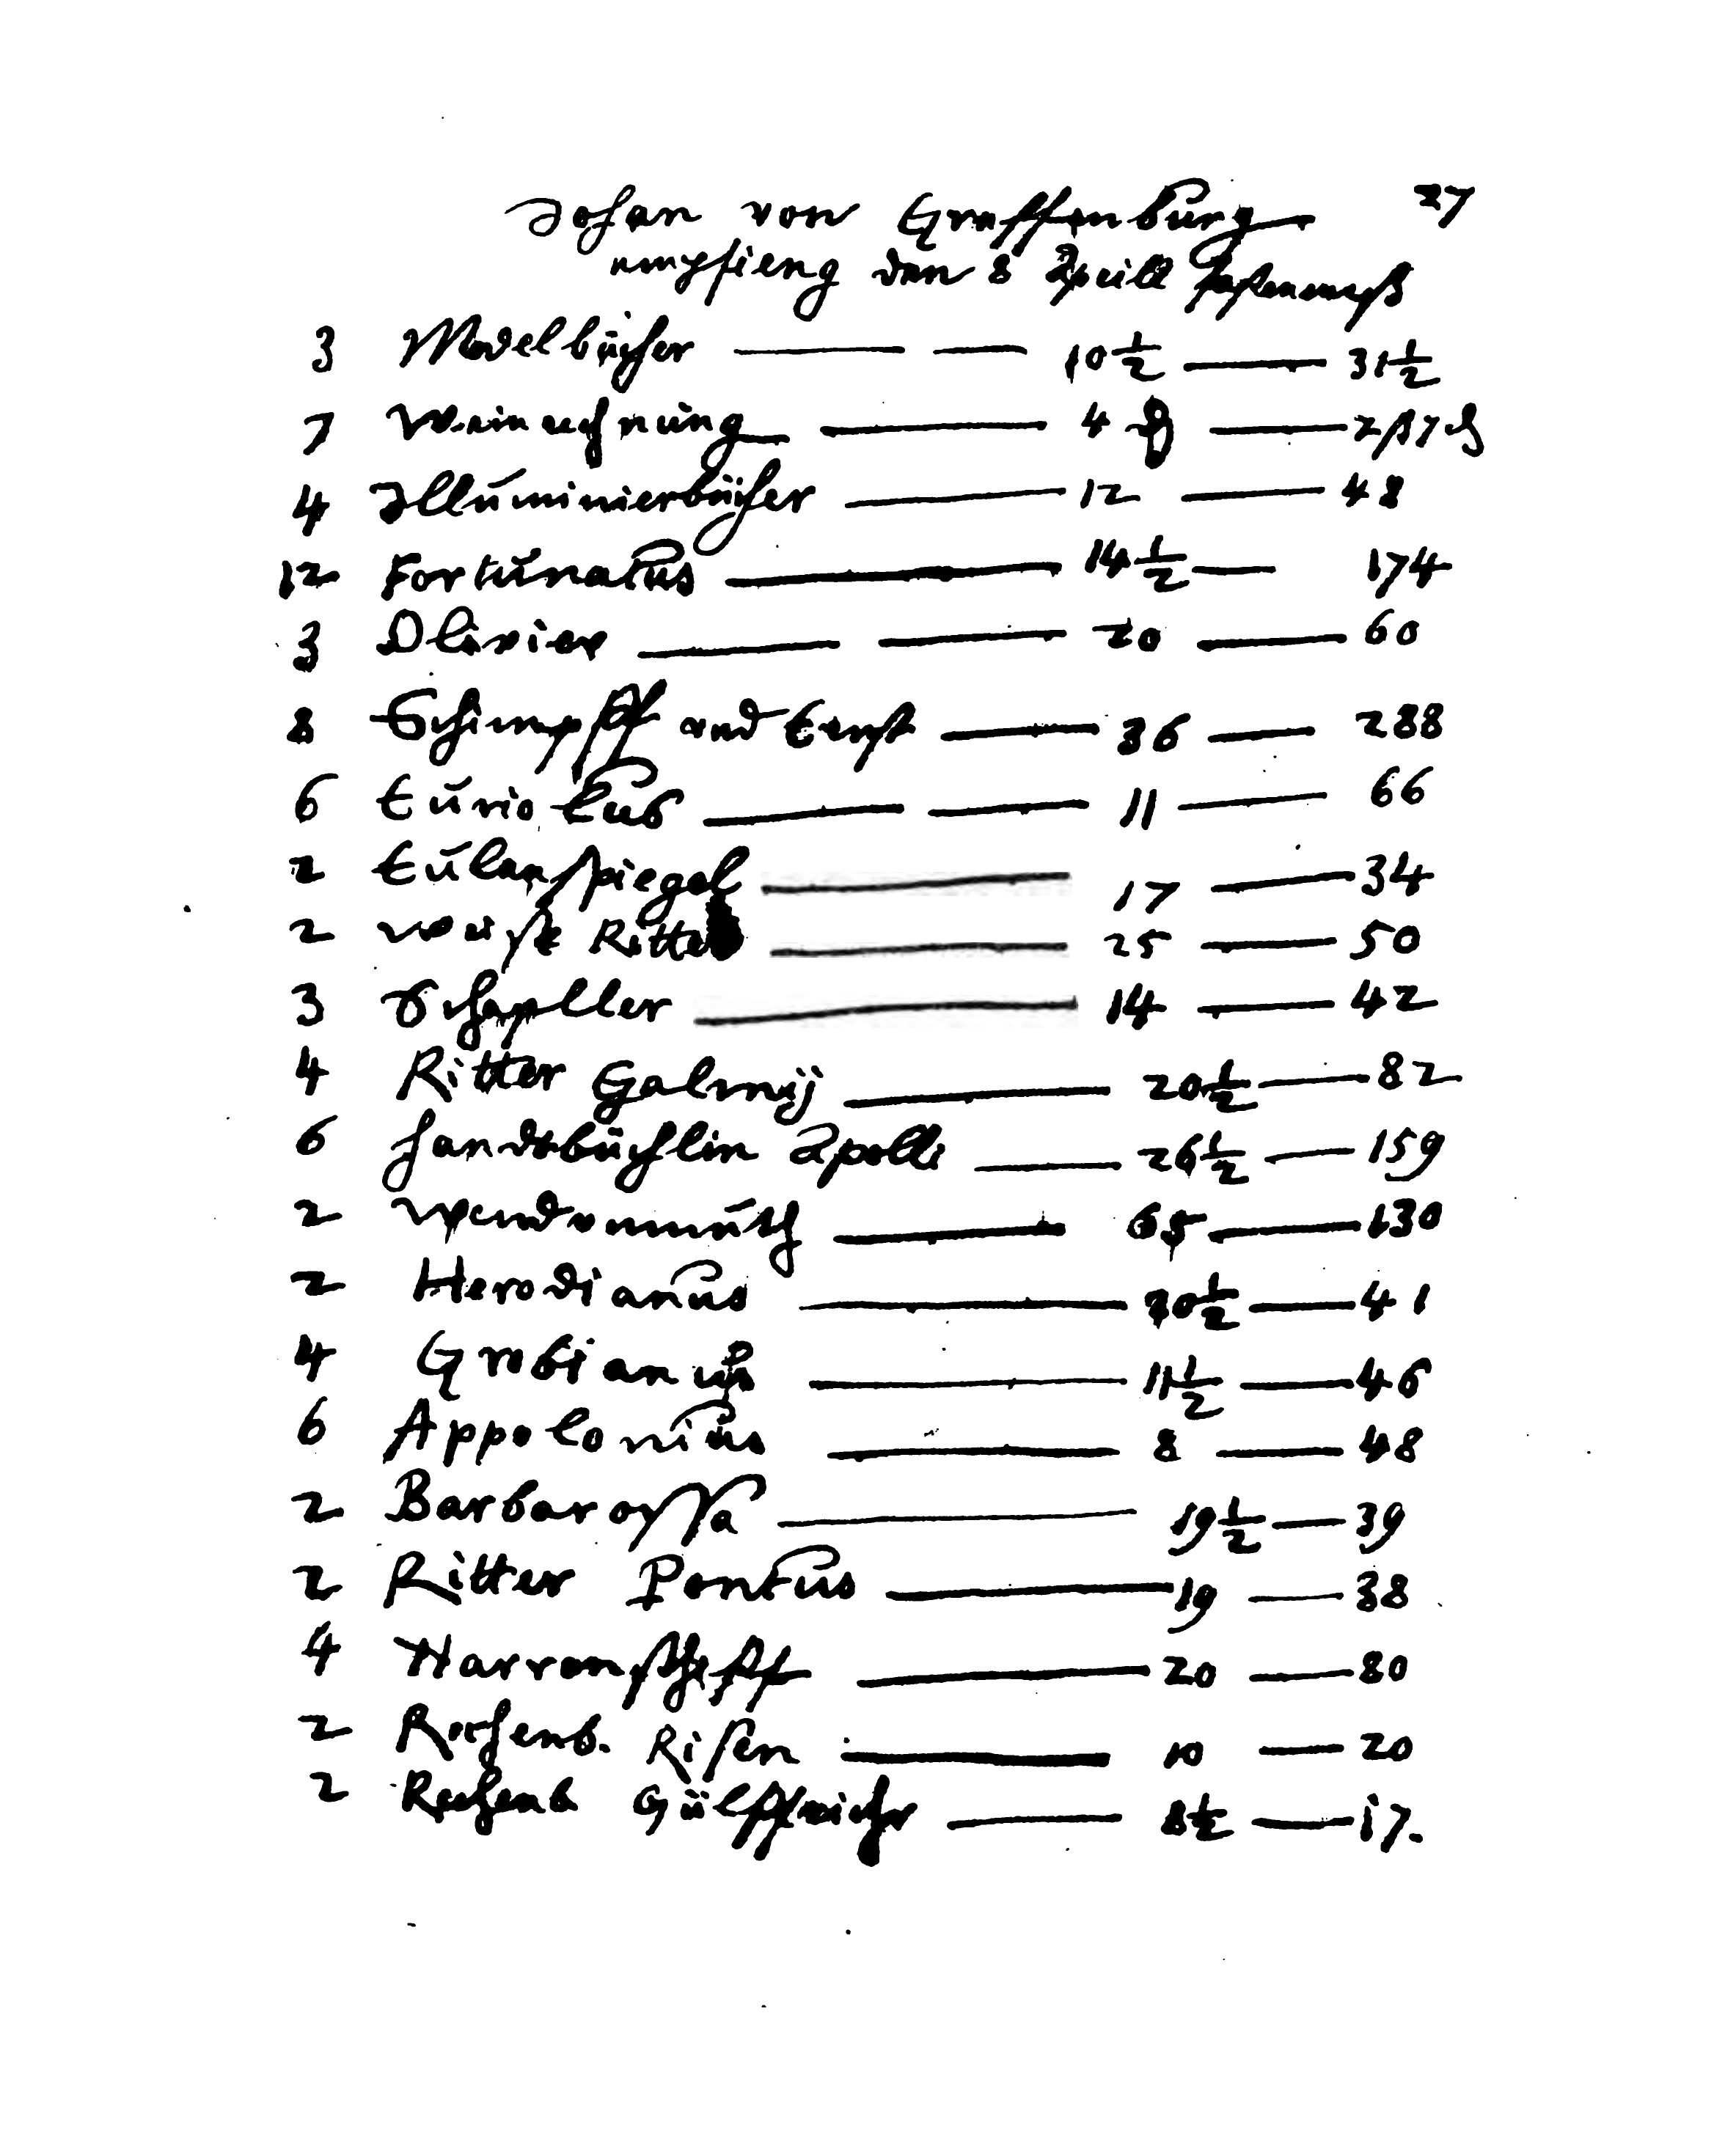 Johan von Graffenburg 27
empfieng den 8 Aprill fastenmeß
3 Modelbücher 10 1/2 31 1/2
7 Weinrechnung 4 ₰ 2 β 7 ₰
4 Illuminierbücher 12 48
12 Fortunatus 14 1/2 174
3 Olivier 20 60
8 Schimpff und Ernst 36 288
6 Euriolus 11 66
2 Eulenspiegel 17 34
2 weise Ritter 25 50
3 Schapller 14 42
4 Ritter Galmij 20 1/2 82
6 Handtbüchlin Apolli 26 1/2 159
2 Wendunmuth 65 130
2 Herodianus 20 1/2 41
4 Grobianus 11 1/2 46
6 Appolonius 8 48
2 Barbarossa 19 1/2 39
2 Ritter Pontus 19 38
4 Narrenschiff 20 80
2 Rechenb. Risen 10 20
2 Rechenb Gülfferichs 8 1/2 17.